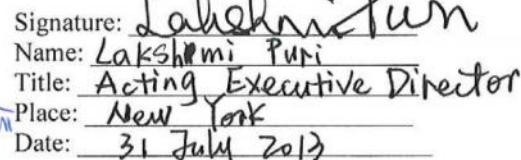 Signature: Lakshmi Puri
Name: Lakshmi Puri
Title: Acting Executive Director
Place: New York
Date: 31 July 2013